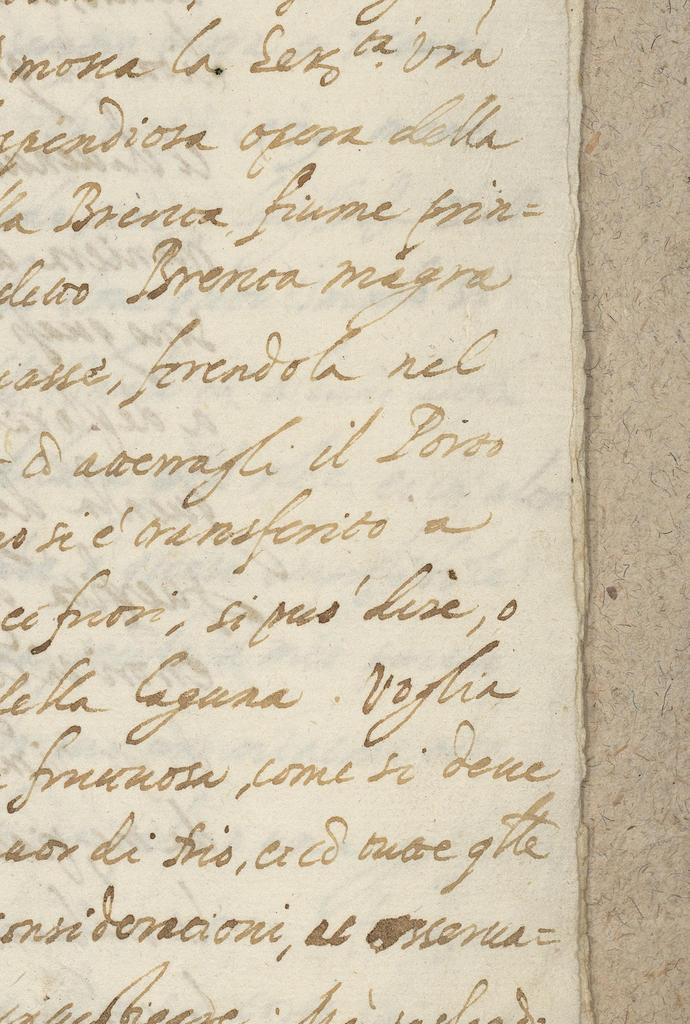 mossa la Ser.tà Vrà
spendiosa opera della
la Brenta, fiume prin=
detto Brenta magra
iasse, ferendola nel
cõ atterragli il Porto
no si é transferito a
ci fuori, si può dire, o
della laguna. Voglia
fruttuosa, come si deue
di Dio, et cõ tutte qlle
considerationi, et osserua=